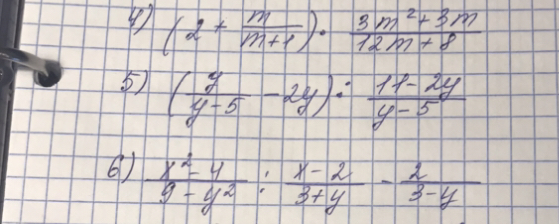 4) (2 + m/(m+1)) · (3m²+3m)/(12m+8)
5) (y/(y-5) - 2y) : (11-2y)/(y-5)
6) (x²-4)/(9-y²) : (x-2)/(3+y) - 2/(3-y)